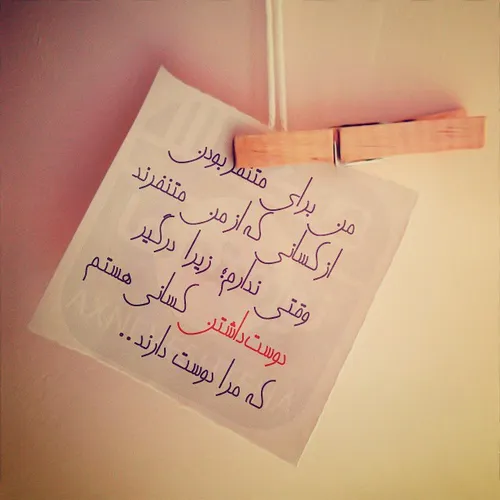 من برای متنفر بودن
از کسانی که از من متنفرند
وقتی ندارم؛ زیرا درگیر
دوست داشتن کسانی هستم
که مرا دوست دارند..